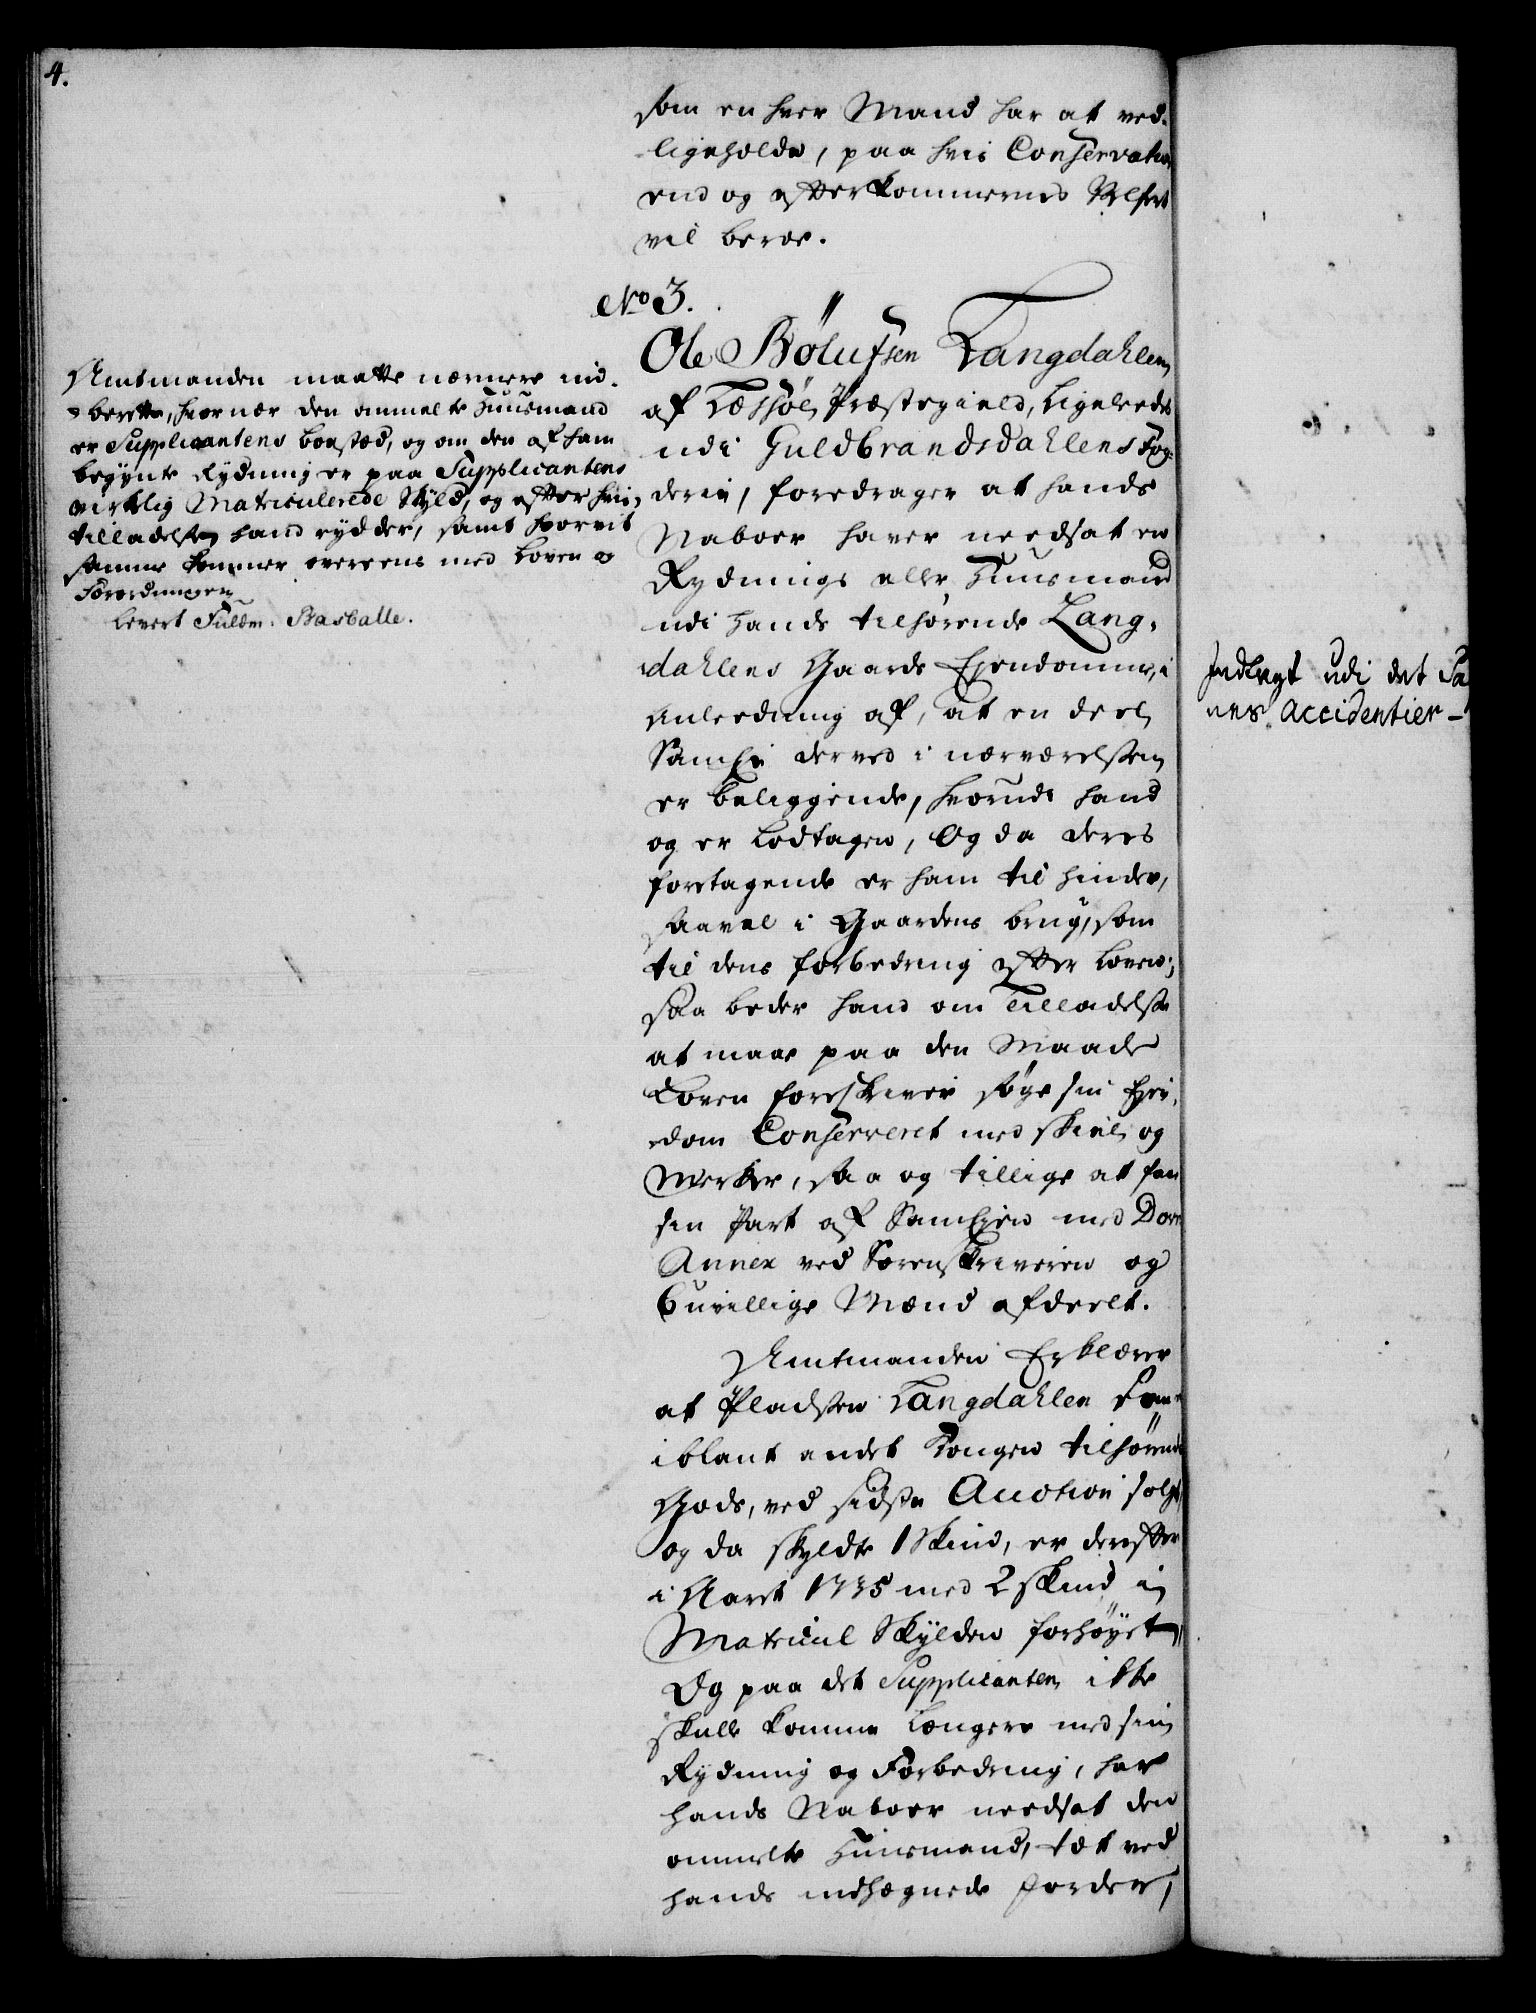 4.
som en hver Mand har at ved-
ligeholde, paa hvis Conservation
end og efterkommernes Velferd
vil beroe.
No 3.
Ole Bølufsen Langdahlen
af Lessøe Præstegield, Ligeleedes
udi Guldbrandsdahlens Fog-
derie, foredrager at hands
Naboer haver needsat en
Rydnings eller Huusmand
udi hands tilhørende Lang-
dahlens Gaards Ejendomme, i
anleedning af, at en deel
SamEje derved i nærværelsen
er beliggende, hvorudi hand
og er Lodtagen, Og da deres
foretagende er ham til hinder,
saavel i Gaardens brug, som
til dens forbedring efter Loven;
saa beder hand om Tilladelse
at maae paa den Maade
Loven foreskriver søge sin Ejen-
dom Conserveret med skiel og
Merker, saa og tillige at faae
sin Part af SamEjen med Dovre
Annex ved Sorenskriveren og
6 uvillige Mænd afdeelt.
Amtmanden Erklærer
at Pladsen Langdahlen
iblant andet Kongen tilhørende
Gods, ved sidste Auction solgt,
og da skyldte 1 Skind, er derefter
i Aaret 1735 med 2 skind i
Matricul Skylden forhøyet,
Og paa det Supplicanten ikke
skulle komme Længere med sin
Rydning og Forbedring, har
hands Naboer needsat den
ommelte Huusmand, tæt ved
hands indhægnede Jorder,
Amtmanden maatte nærmere ind-
berette, hvor nær den ommelte Huusmand
er Supplicantens boested, og om den af ham
begynte Rydning er paa Supplicantens
virklig Matriculerede Skyld, og efter hvis
tilladelse hand rydder, samt hvorvit
samme kommer overeens med Loven og
Forordninger
Levert Fuldm: Basballe.
Indlagt udi det Sa
nes Accidentier –